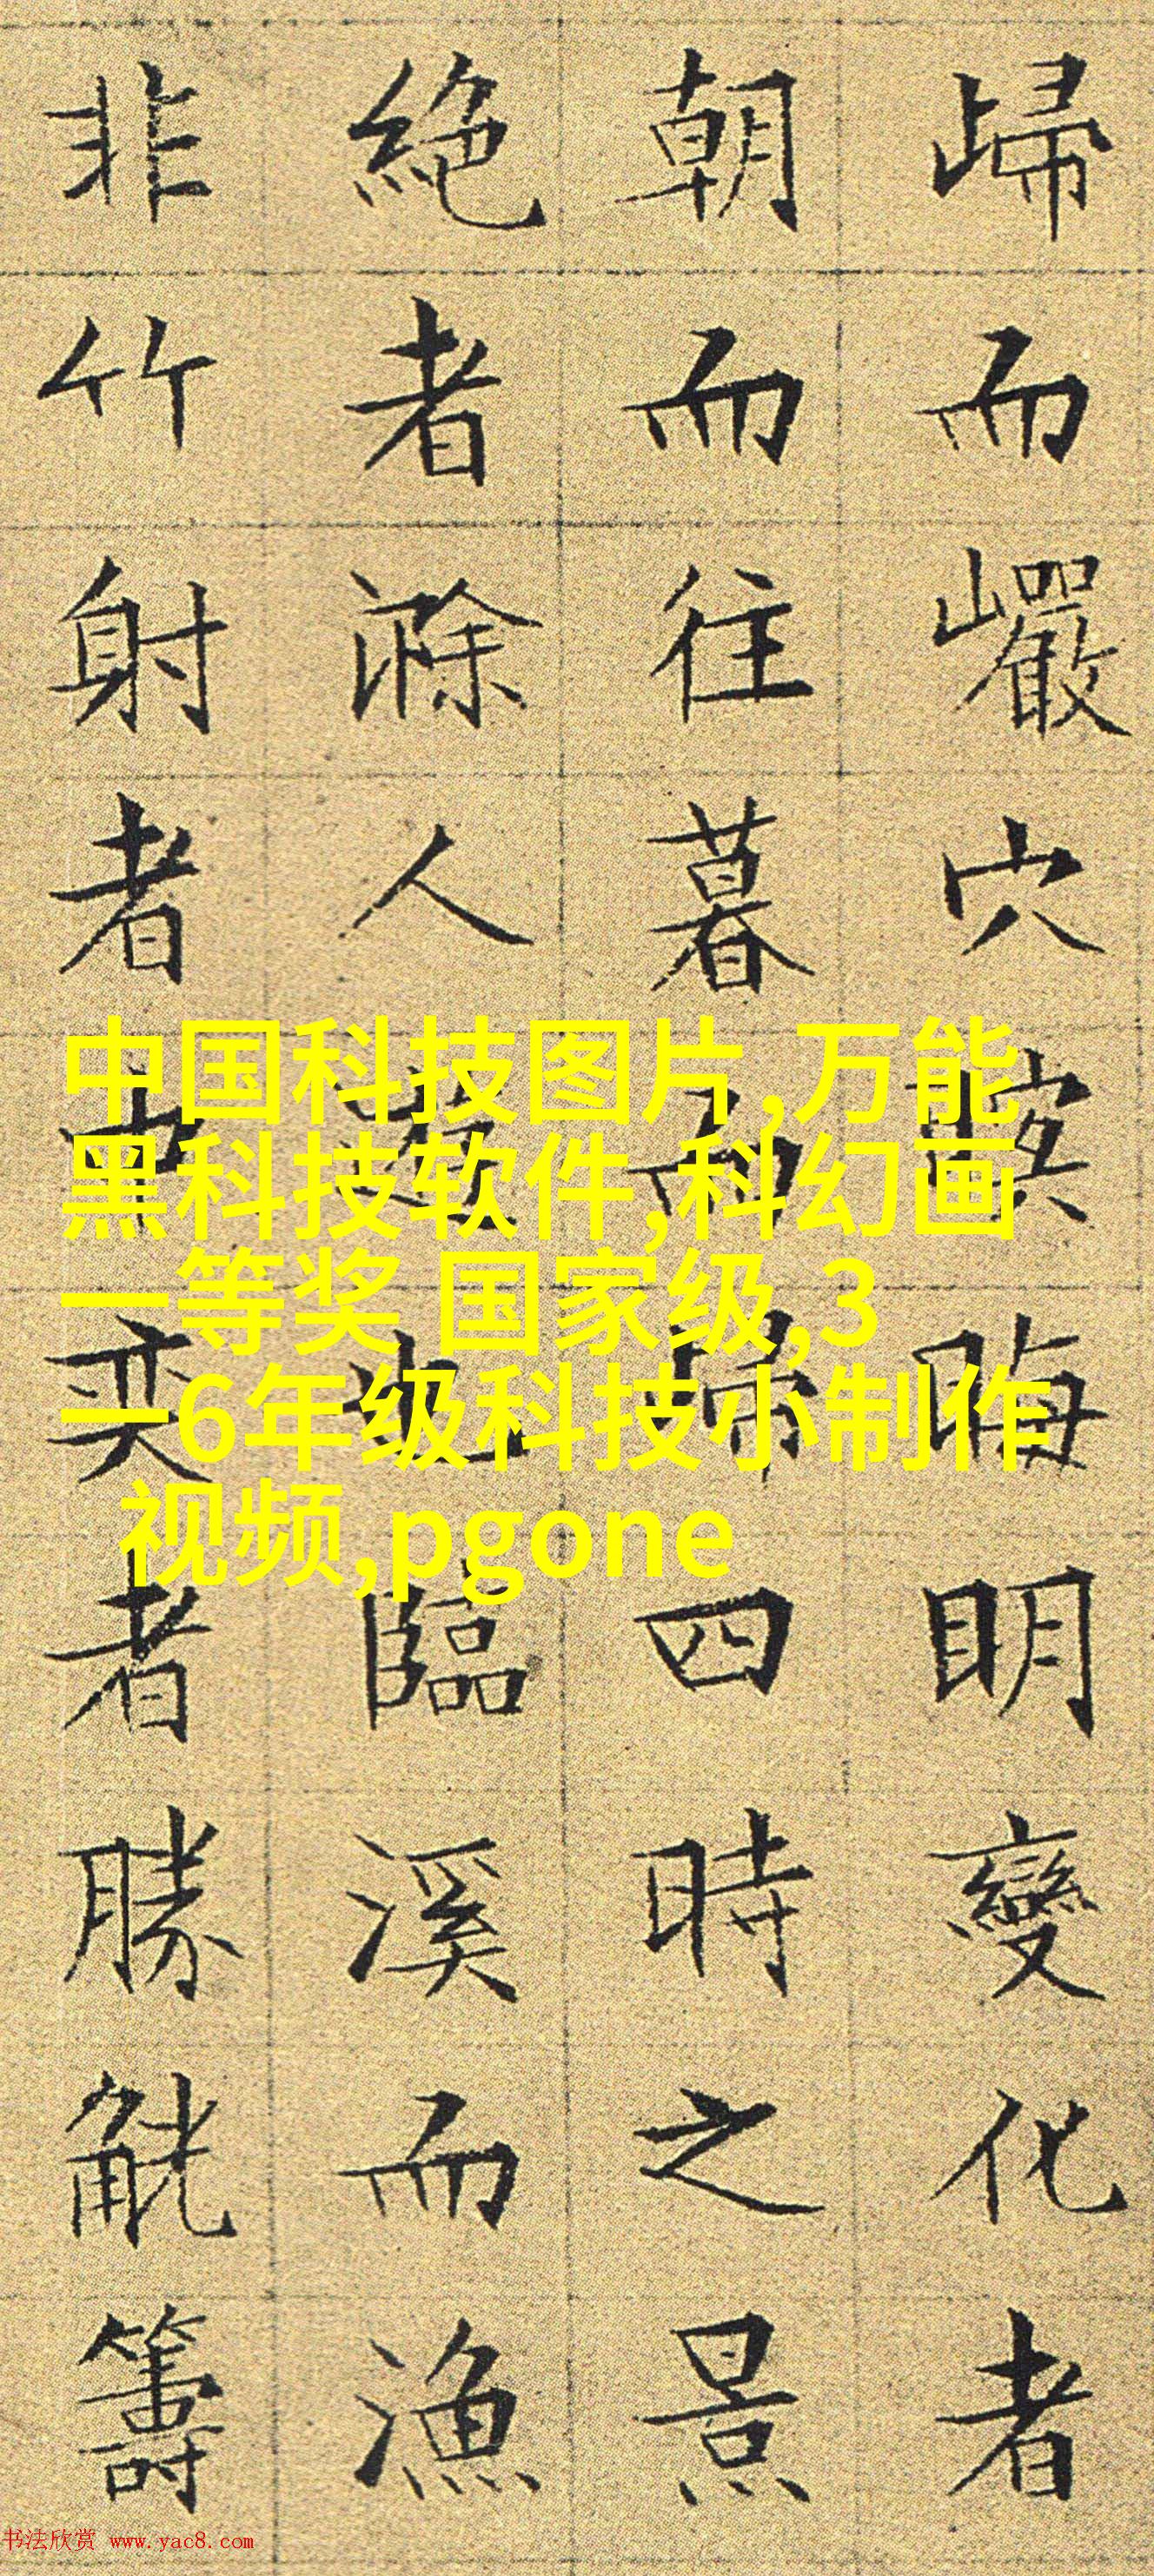 歸而巖穴暝晦眀變化者
朝而往暮而歸四時之景
絕者滁人遊也臨溪而漁
非竹射者中奕者勝觥籌
中国科技图片,万能
黑科技软件,科幻画
一等奖 国家级,3
一6年级科技小制作
视频,pgone
书法欣赏 www.yac8.com